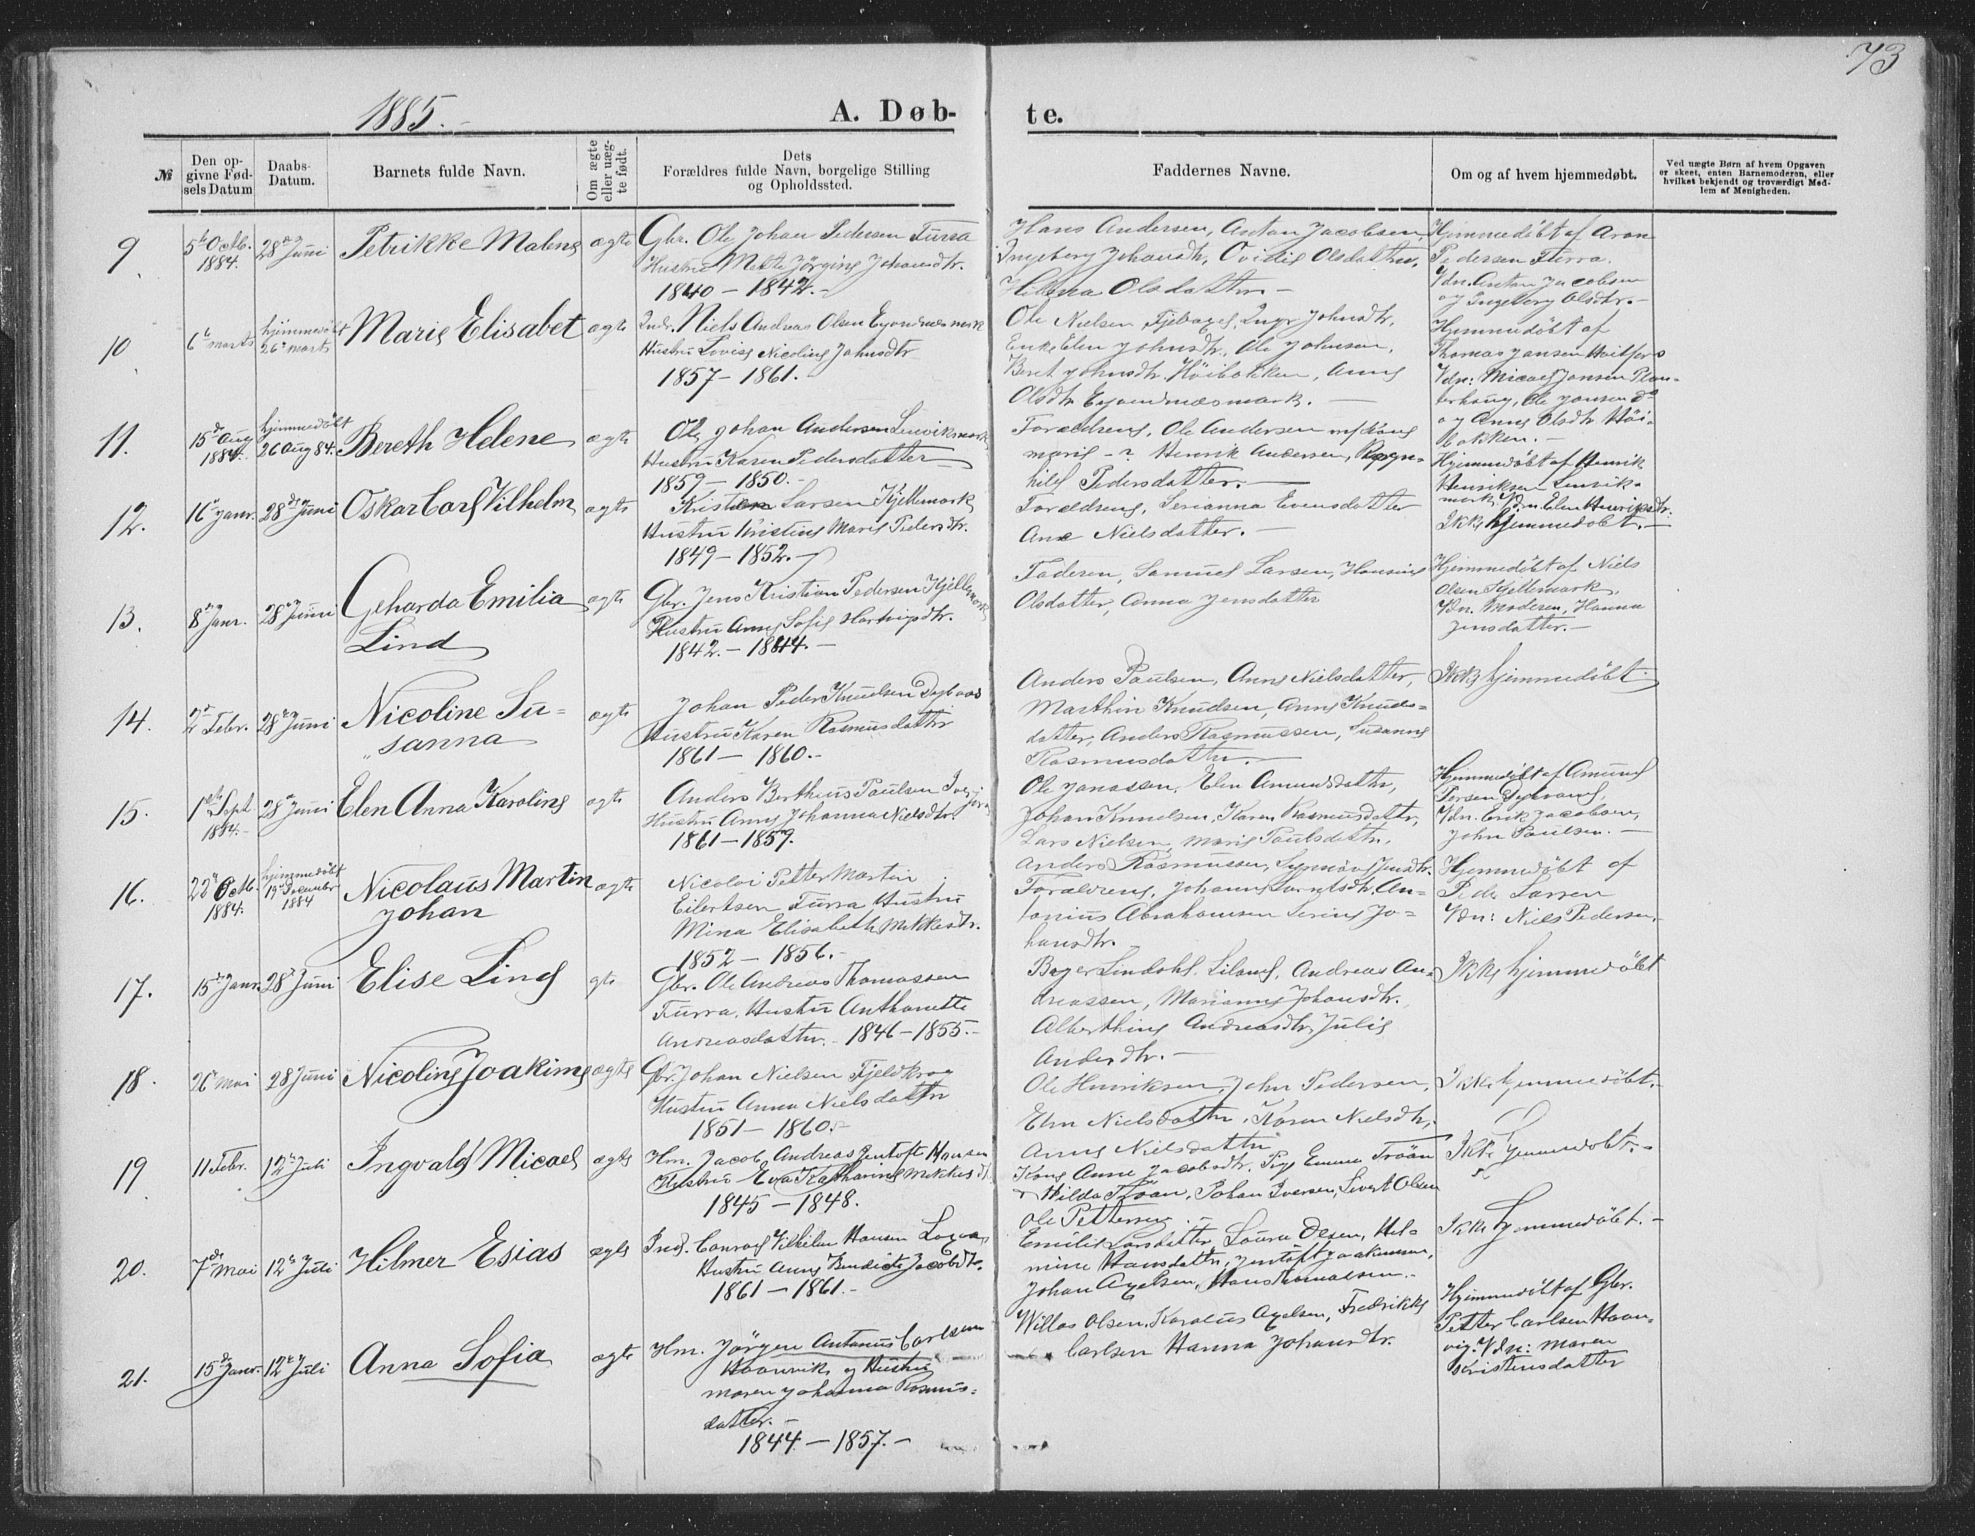 73
1885.
A. Døb-
te.
№
Den op-
givne Fød-
sels Datum
Daabs-
Datum.
Barnets fulde Navn.
Om ægte
eller uæg-
te født.
Dets
Forældres fulde Navn, borgelige Stilling
og Opholdssted.
Faddernes Navne.
Om og af hvem hjemmedøbt.
Ved uægte Børn af hvem Opgaven
er skeet, enten Barnemoderen, eller
hvilket bekjendt og troværdigt Med-
lem af Menigheden.
9.
5te Octb.
1884.
28de Juni
Petrikke Malene
ægte
Gbr. Ole Johan Pedersen Furra
Hustru Mette Jørgine Johansdtr.
1840 - 1842.-
Hans Andersen, Anton Jacobsen,
Ingeborg Johansdtr, Ovidie Olsdatter,
Helena Olsdatter.-
Hjemmedøbt af Aron
Pedersen Furra.
Vdn. Anton Jacobsen
og Ingeborg Olsdtr.-
10
6te marts
hjemmedøbt
26de marts
Marie Elisabet
ægte
Indr. Niels Andreas Olsen Eyvendnæsmark
Hustru Lovise Nicoline Johnsdtr
1857 - 1861.
Ole Nielsen Johnsdtr,
Enke Elen Johnsdtr, Ole Johnsen,
Beret Johnsdtr Høibakken, Anne
Olsdtr Eyvendnæsmark.-
Hjemmedøbt af
Thomas Jansen
Vdn: Micael Jonsen
Ole Jonsen do
og Anne Olsdtr Høi-
bakken.-
11.
15de Aug
1884.
hjemmedøbt
26 Aug 84.
Bereth Helene
ægte
Ole Johan Andersen Lenviksmark
Hustru Karen Pedersdatter
1859 - 1850.-
Forældrene, Ole Andersen
marie - ? Henrik Andersen, Ragn-
hild Pedersdatter.-
Hjemmedøbt af Henrik
Henriksen Lenvik-
mark Vdn. Elen Henriksdtr.
12.
16de Janr.
28de Juni
Oskar Carl Vilhelm
ægte
Kristen Larsen Kjellemark
Hustru Kristine Marie Pedersdtr.
1849 - 1852.-
Forældrene, Serianna Evensdatter
Ane Nielsdatter.-
Ikke hjemmedøbt.-
13.
8de Janr.
28de Juni
Geharda Emilia
Lind
ægte
Gbr. Jens Kristian Pedersen Kjellemark
Hustru Anne Sofie Hartvigsdtr.
1842. - 1844.-
Faderen, Samuel Larsen, Hansine
Olsdatter, Anna Jensdatter
Hjemmedøbt af Niels
Olsen Kjellemark,
Vdn. Moderen, Hanna
Jensdatter.-
14.
2de Febr.
28de Juni
Nicoline Su-
sanna
ægte
Johan Peder Knudsen Dypvaag
Hustru Karen Rasmusdatter
1861 - 1860.-
Anders Paulsen, Anne Nielsdatter,
Marthin Knudsen, Anne Knuds-
datter, Anders Rasmussen, Susanne
Rasmusdatter.-
Ikke hjemmedøbt
15.
1ste Sept
1884.-
28de Juni
Elen Anna Karoline
ægte
Anders Bertheus Paulsen
Hustru Anne Johanna Nielsdtr.
1861 - 1859.
Ole Jonassen, Elen Amundsdatter,
Johan Knudsen, Karen Rasmusdatter,
Lars Nielsen, Marie Paulsdatter,
Anders Rasmussen, Jensdtr.
Hjemmedøbt af Amund
Vdn. Erik Jacobsen,
John Paulsen.-
16.
22de Octb.
1884.
hjemmedøbt
19de December
1884
Nicolaus Martin
Johan
ægte
Nicolai Petter Martin
Eilertsen Furra Hustru
Mina Elisabeth Mikkelsdtr.
1852 - 1856.-
Forældrene, Johanna Larntsdtr, An-
tonius Abrahamsen Serine Jo-
hansdtr.
Hjemmedøbt af
Peder Larsen
Vdn: Niels Pedersen.
17.
15de Janr.
28de Juni
Elise Line
gte
Gbr. Ole Andreas Thomassen
Furra, Hustru Anthonette
Andreasdatter. 1846 - 1855.-
Andreas An-
dreassen, Marianne Johansdtr.
Alberthine Andreasdtr, Julie
Andersdtr.-
Ikke hjemmedøbt
18.
26de Mai
28 Juni
Nicoline Joakime
ægte
Gbr. Johan Nielsen Fjeldkrog
Hustru Anna Nielsdatter
1851 - 1860.-
Ole Henriksen, John Pedersen,
Elen Nielsdatter, Karen Nielsdtr,
Anne Nielsdatter
Ikke hjemmedøbt.-
19
11 Febr.
12te Juli
Ingvald Micael
ægte
Hm. Jacob Andreas Jentoft Hansen
Hustru Eva Katharina Mikkelsdtr
1845 - 1848.
Kone Anne Jacobsdtr, Pige Emma Troan
Hilda Troan, Johan Iversen, Sivert Olsen
Ole Pettersen.-
Ikke hjemmedøbt.-
20.
7de Mai
12te Juli
Hilmer Esias
ægte
Ind. Conrad Vilhelm Hansen
Hustru Anne Bendicte Jacobsdtr.
1861 - 1861.-
Emilie Larsdatter, Laura Olsen, Hel-
mine Hansdatter, Jentoft Joakimsen,
Johan Axelsen,
Ikke hjemmedøbt.-
21.
15de Janr.
12te Juli
Anna Sofia
ægte
Hm. Jørgen Antonius Carlsen
Haanvik, og Hustru
Maren Johanna Rasmus-
datter.-
1844 - 1857.-
Willas Olsen, Karolius Axelsen, Fredrikke
Carlsen Hanna Johansdtr.
Hjemmedøbt af Gbr.
Petter Carlsen Haan-
vig. Vdn: Maren
Kristensdatter